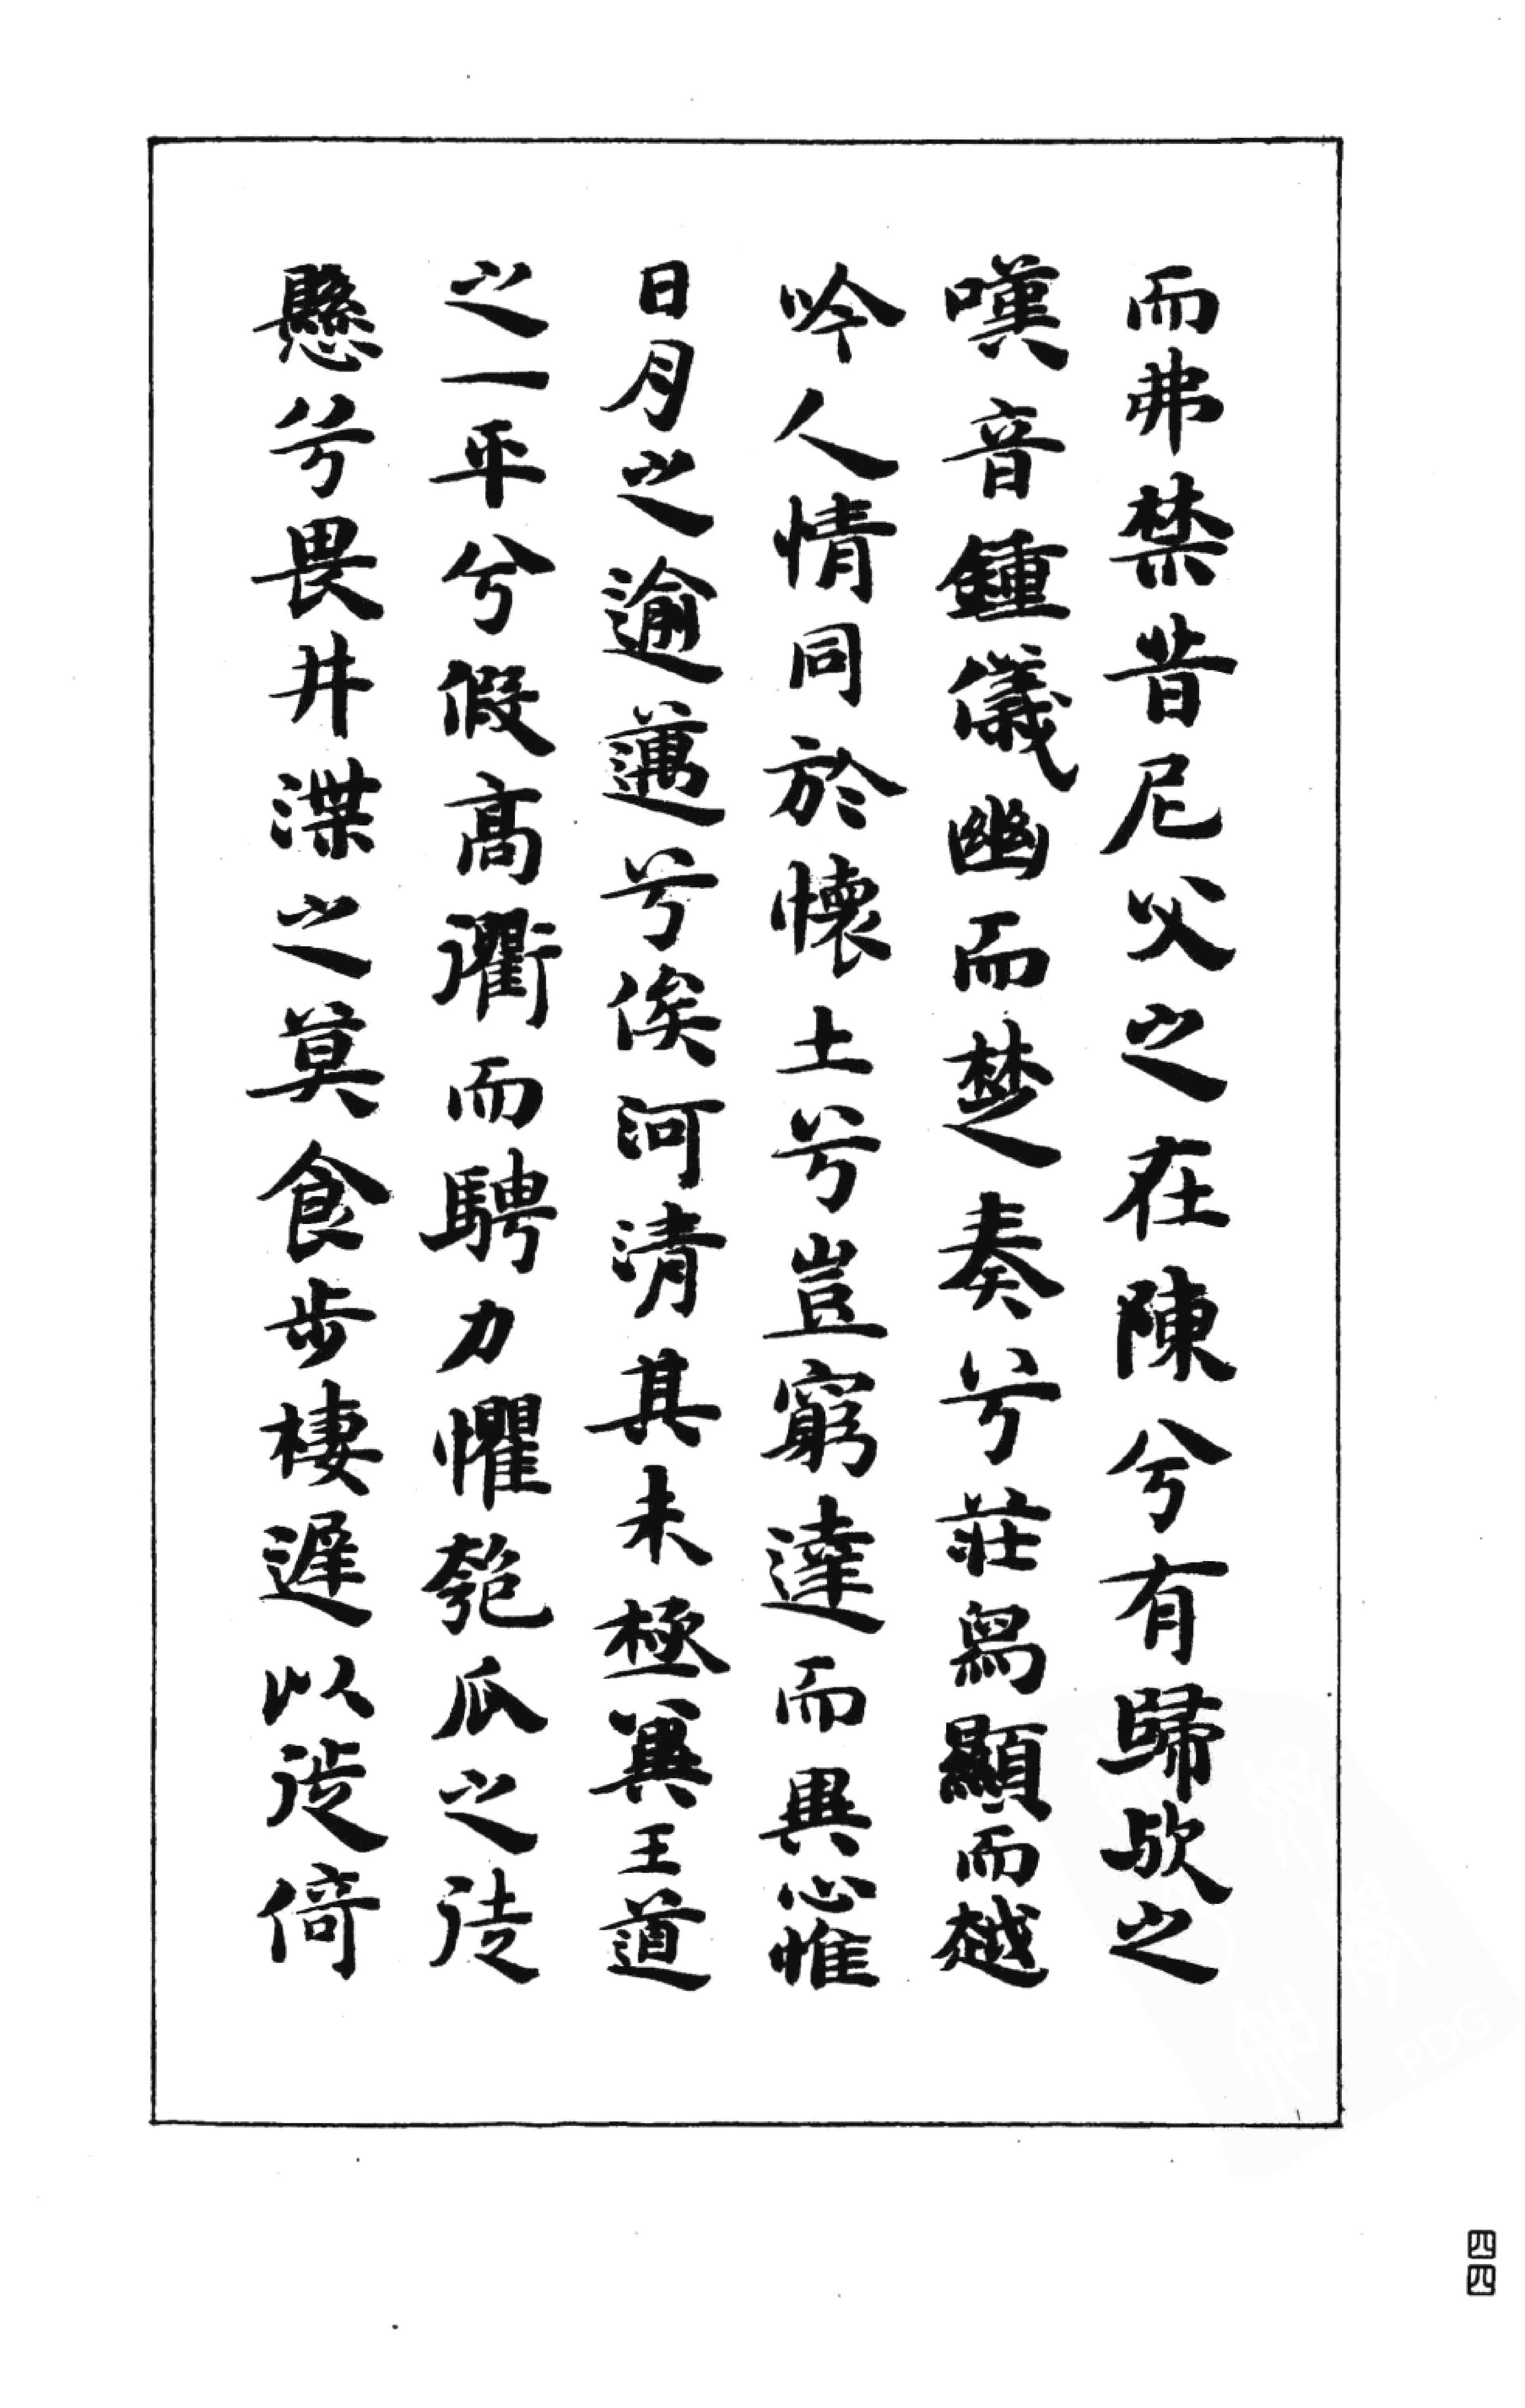 而弗禁昔尼父之在陳兮有歸歟之
嘆音鍾儀幽而楚奏兮莊舄顯而越
吟人情同於懷土兮豈窮達而異心惟
日月之逾邁兮俟河清其未極冀王道
之一平兮假高衢而騁力懼匏瓜之徒
懸兮畏井渫之莫食步棲遲以徙倚
四四
PDG